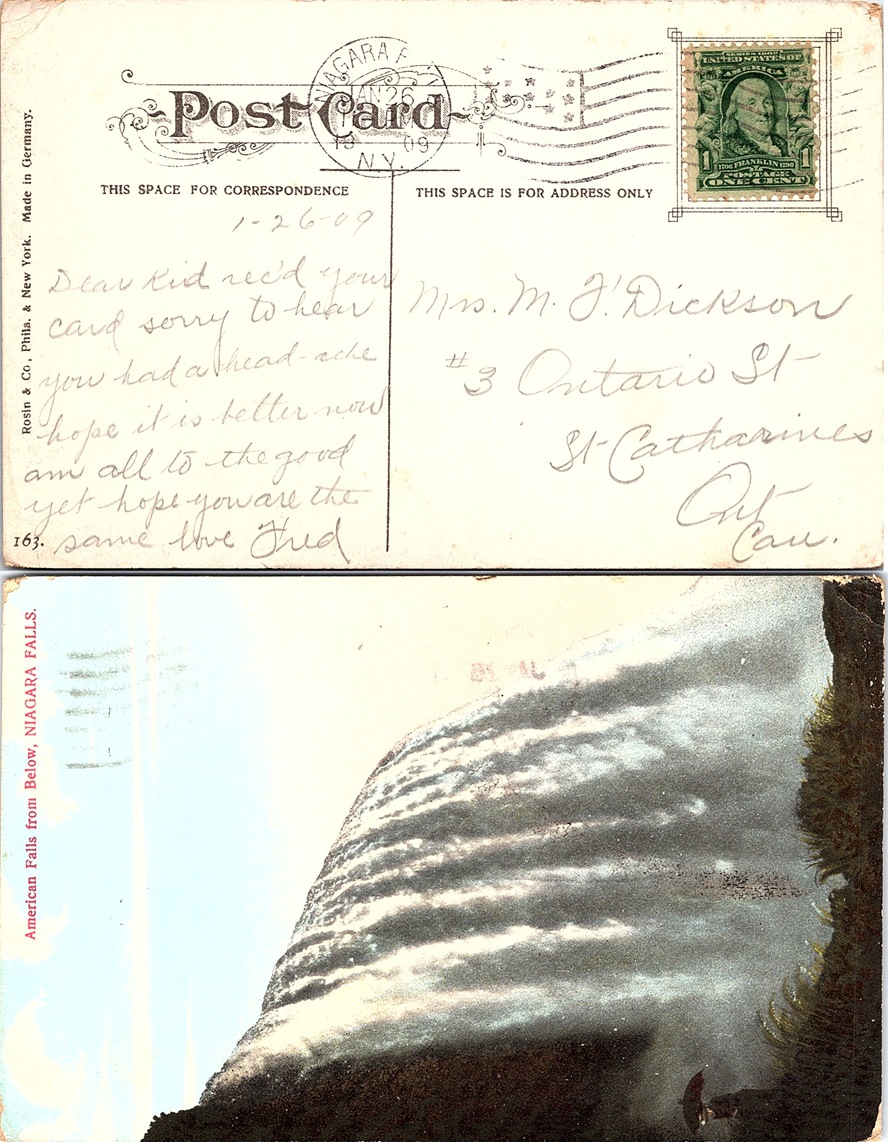 NIAGARA F
JAN 26
19 09
N.Y.
Post Card
SERIES 1902
UNITED STATES OF
AMERICA
1 1706 FRANKLIN 1790 1
POSTAGE
ONE CENT
THIS SPACE FOR CORRESPONDENCE
THIS SPACE IS FOR ADDRESS ONLY
Rosin & Co., Phila. & New York. Made in Germany.
1-26-09
Dear Kid rec'd your
card sorry to hear
you had a head-ache
hope it is better now
am all to the good
yet hope you are the
same love Fred
163.
Mrs. M. F. Dickson
#3 Ontario St
St Catharines
Ont
Can.
American Falls from Below, NIAGARA FALLS.